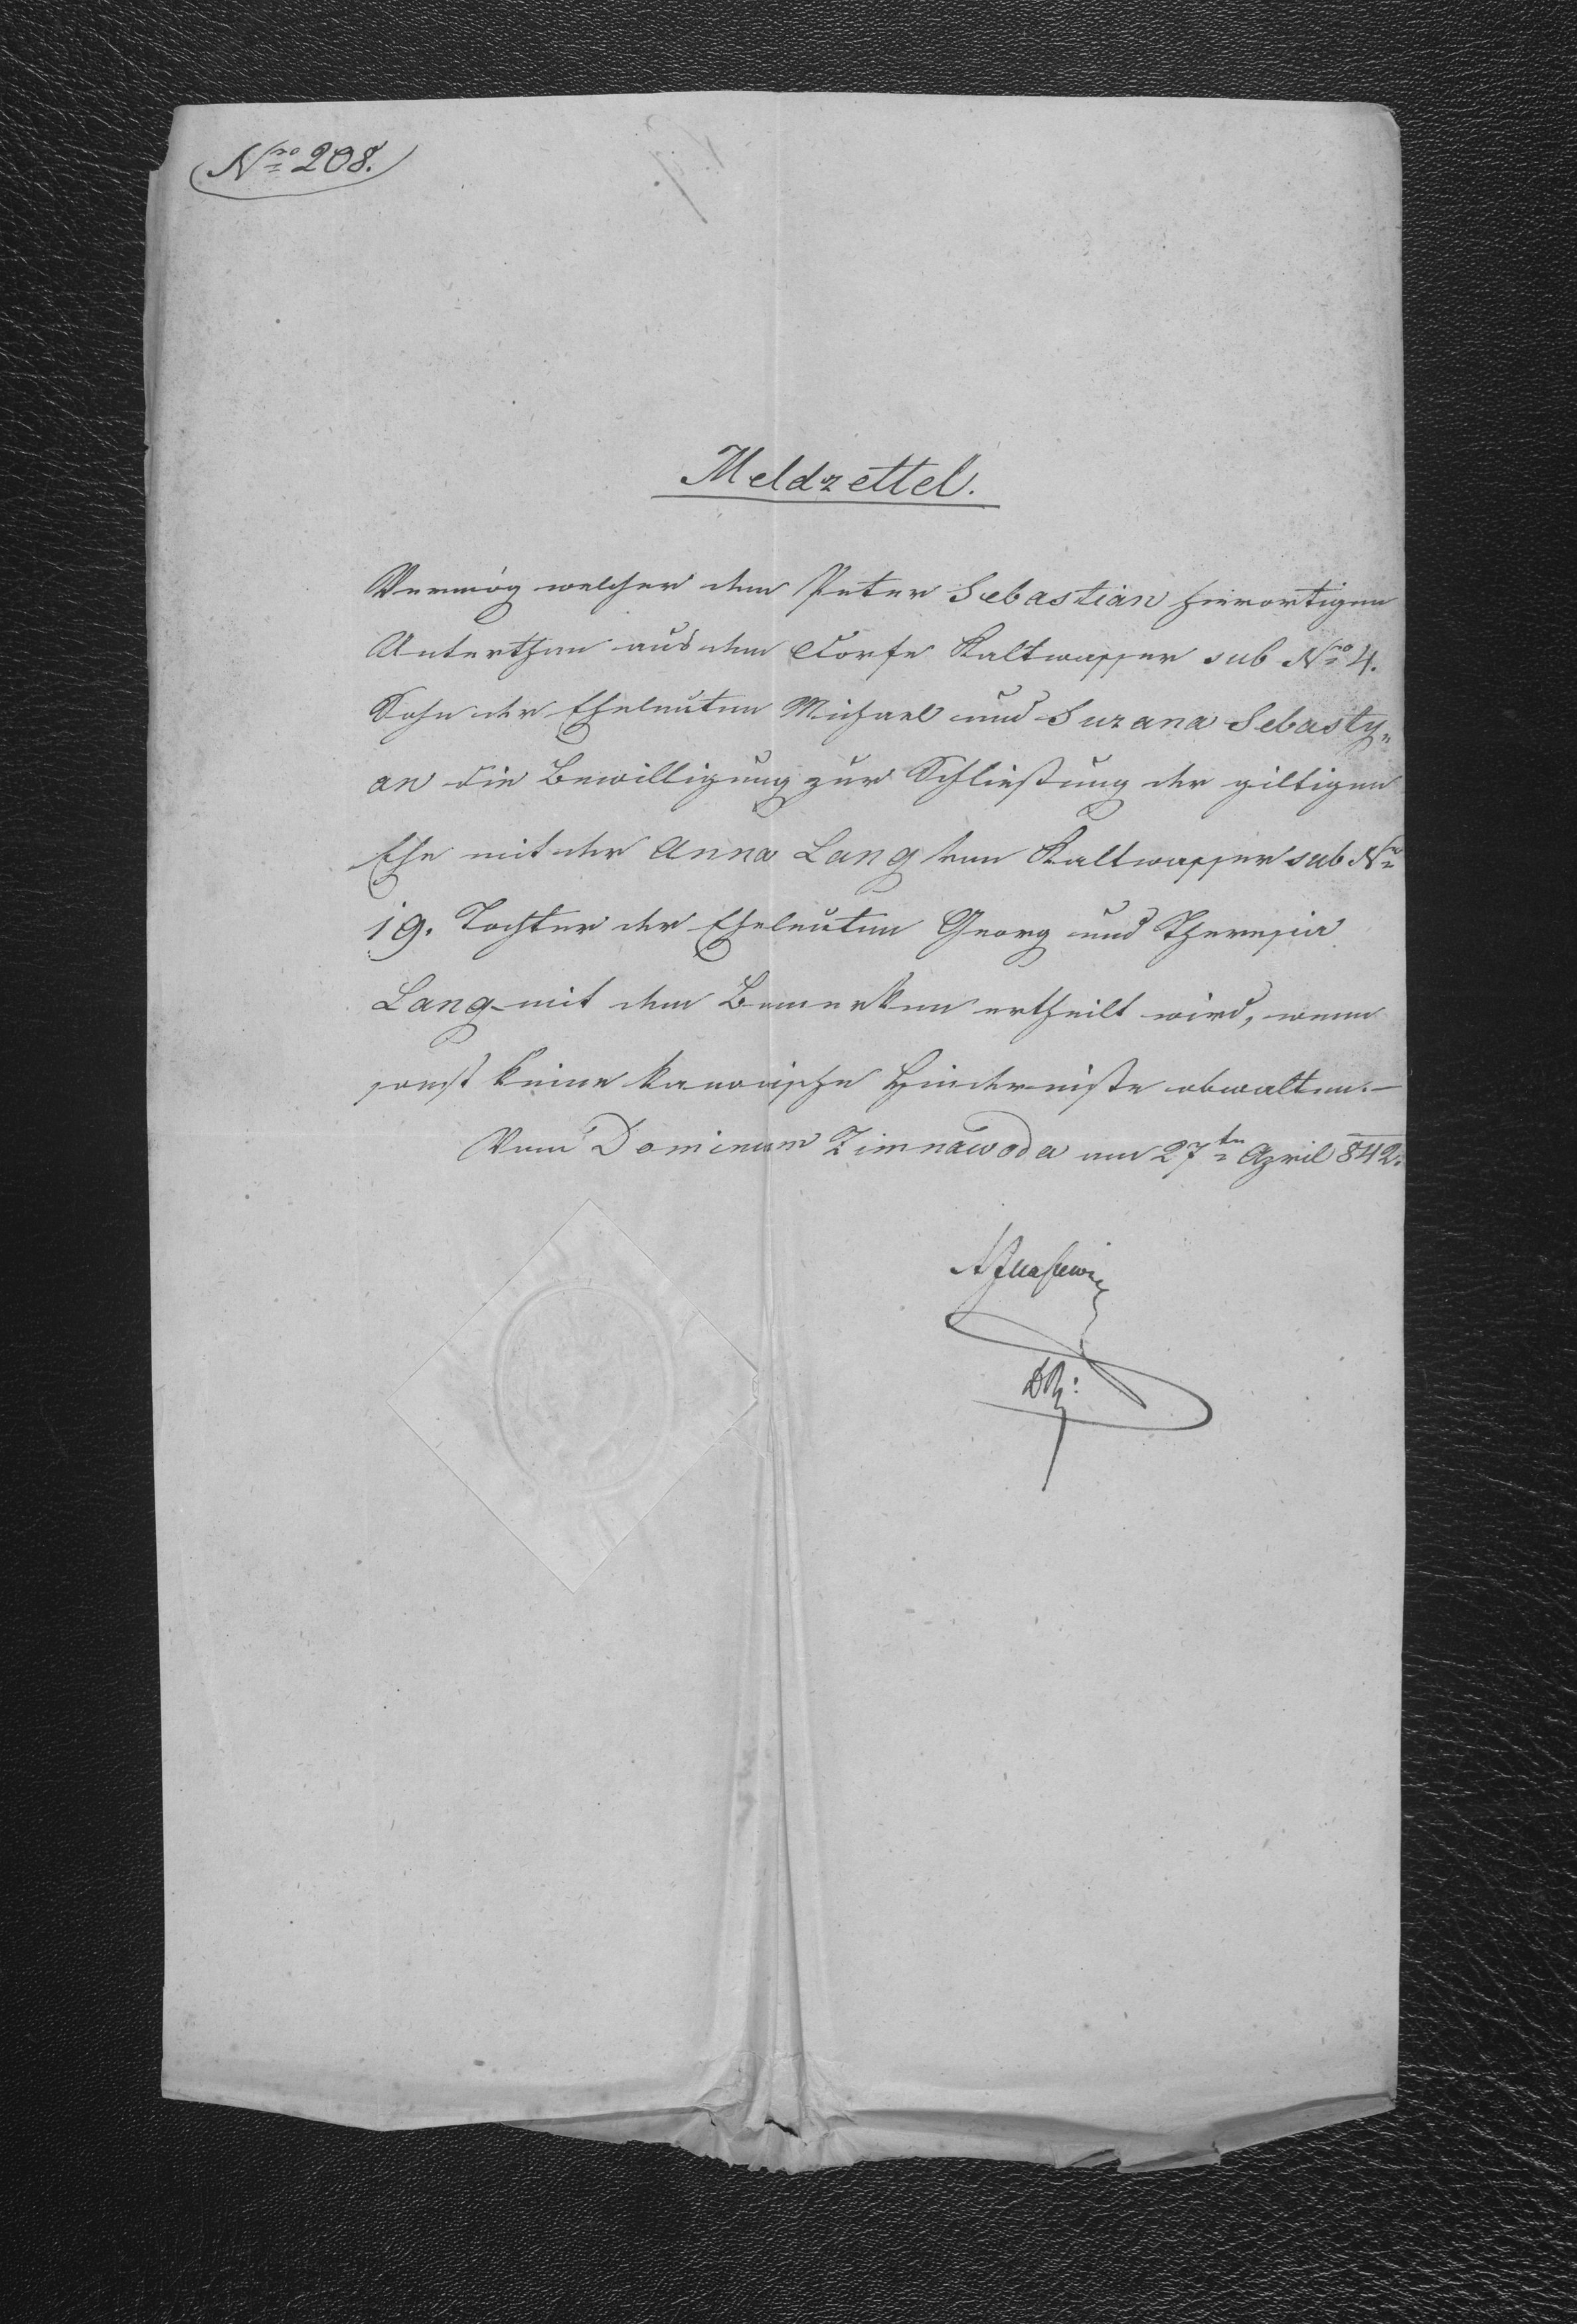 Nro 208.
Meldzettel.
Vermög welcher dem Peter Sebastian hierortigen
Unterthan aus dem Dorfe Kaltwasser sub Nro 4.
Sohn der Eheleuten Michael und Suzana Sebasty„
an die Bewilligung zur Schließung der giltigen
Ehe mit der Anna Lang von Kaltwasser sub Nro
19. Tochter der Eheleuten Georg und Theresia
Lang mit dem Bemerken ertheilt wird, wenn
sonst keine kanonische Hinderniße obwalten.—
Vom Dominium Zimnawoda am 27ten April 842.